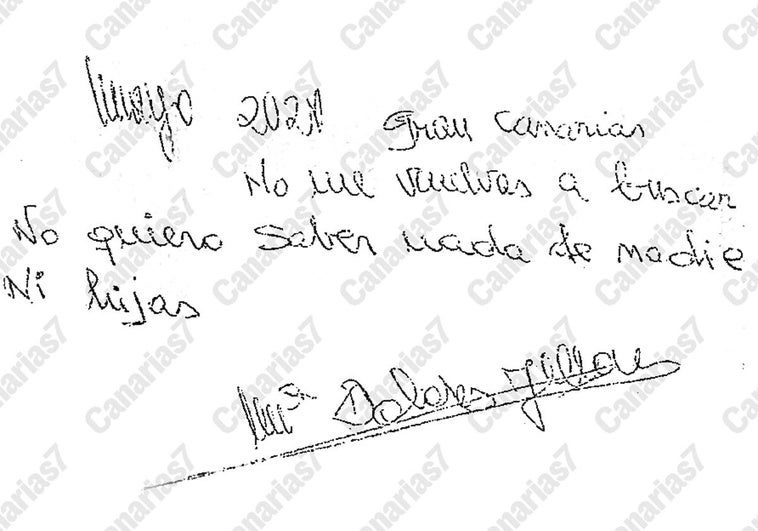 mayo 2021 Gran Canarias
No me vuelvas a buscar
No quiero saber nada de nadie
Ni hijas
Mª Dolores
Canarias7